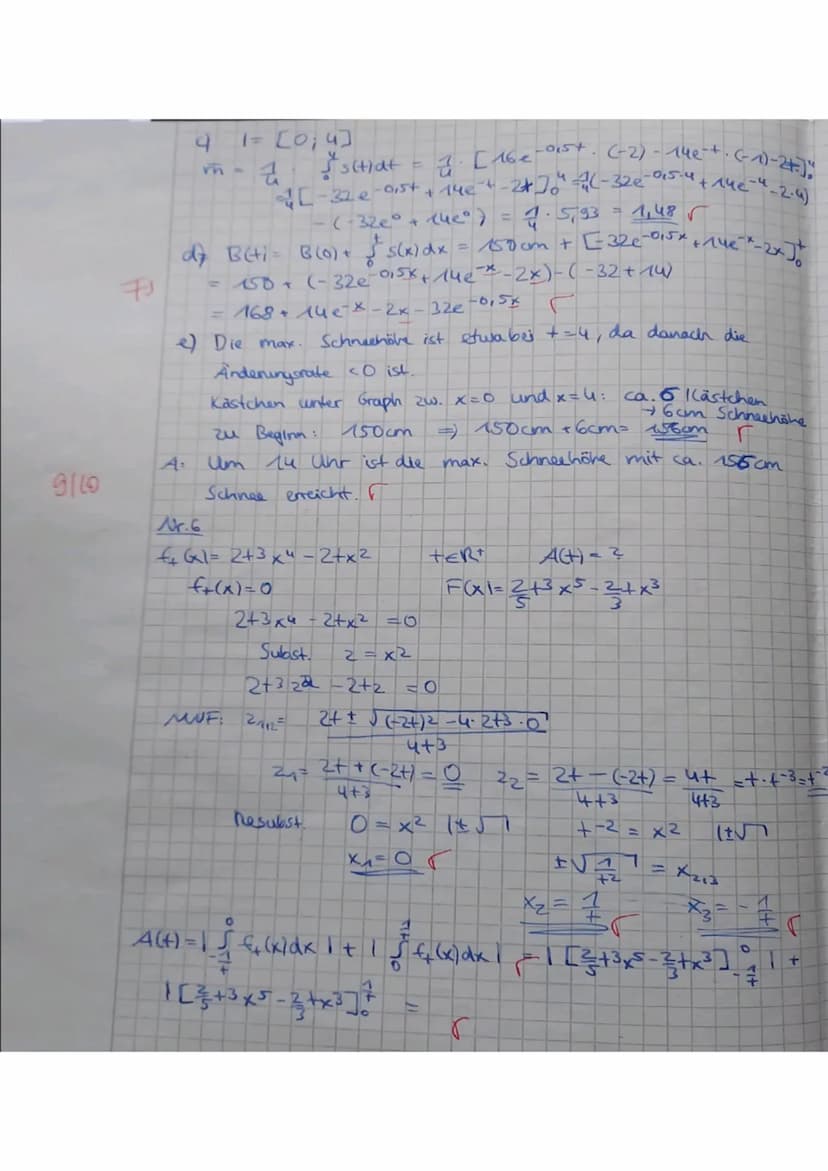 c) I = [0; 4]
m̅ = 1/4 · ∫₀⁴ s(t)dt = 1/4 · [16e^-0,5t · (-2) - 14e^-t · (-1) - 2t]₀⁴
= 1/4 [-32e^-0,5t + 14e^-t - 2t]₀⁴ = 1/4(-32e^-0,5·4 + 14e^-4 - 2·4)
- (-32e⁰ + 14e⁰) = 1/4 · 5,93 = 1,48
d) B(t) = B(0) + ∫₀ᵗ s(x)dx = 150cm + [-32e^-0,5x + 14e^-x - 2x]₀ᵗ
= 150 + (-32e^-0,5x + 14e^-x - 2x) - (-32 + 14)
= 168 + 14e^-x - 2x - 32e^-0,5x
e) Die max. Schneehöhe ist etwa bei t=4, da danach die
Änderungsrate <0 ist.
Kästchen unter Graph zw. x=0 und x=4: ca. 6 Kästchen
→ 6cm Schneehöhe
zu Beginn: 150cm ⇒ 150cm + 6cm = 156cm
A: Um 14 Uhr ist die max. Schneehöhe mit ca. 156cm
9/10
Schnee erreicht.
Nr. 6
fₜ(x) = 2t³x⁴ - 2tx² t∈R⁺ A(t) = ?
fₜ(x) = 0 F(x) = 2/5 t³x⁵ - 2/3 tx³
2t³x⁴ - 2tx² = 0
Subst. z = x²
2t³z² - 2tz = 0
MNF: z₁,₂ = (2t ± √((-2t)² - 4·2t³·0)) / 4t³
z₁ = (2t + (-2t)) / 4t³ = 0 z₂ = (2t - (-2t)) / 4t³ = 4t/4t³ = t·t⁻³ = t⁻²
Resubst. 0 = x² |±√ t⁻² = x² |±√
x₁ = 0 ±√(1/t²) = x₂,₃
x₂ = 1/t x₃ = -1/t
A(t) = |∫₋₁/ₜ⁰ fₜ(x)dx| + |∫₀^(1/t) fₜ(x)dx| = |[2/5 t³x⁵ - 2/3 tx³]₋₁/ₜ⁰| +
|[2/5 t³x⁵ - 2/3 tx³]₀^(1/t)| =